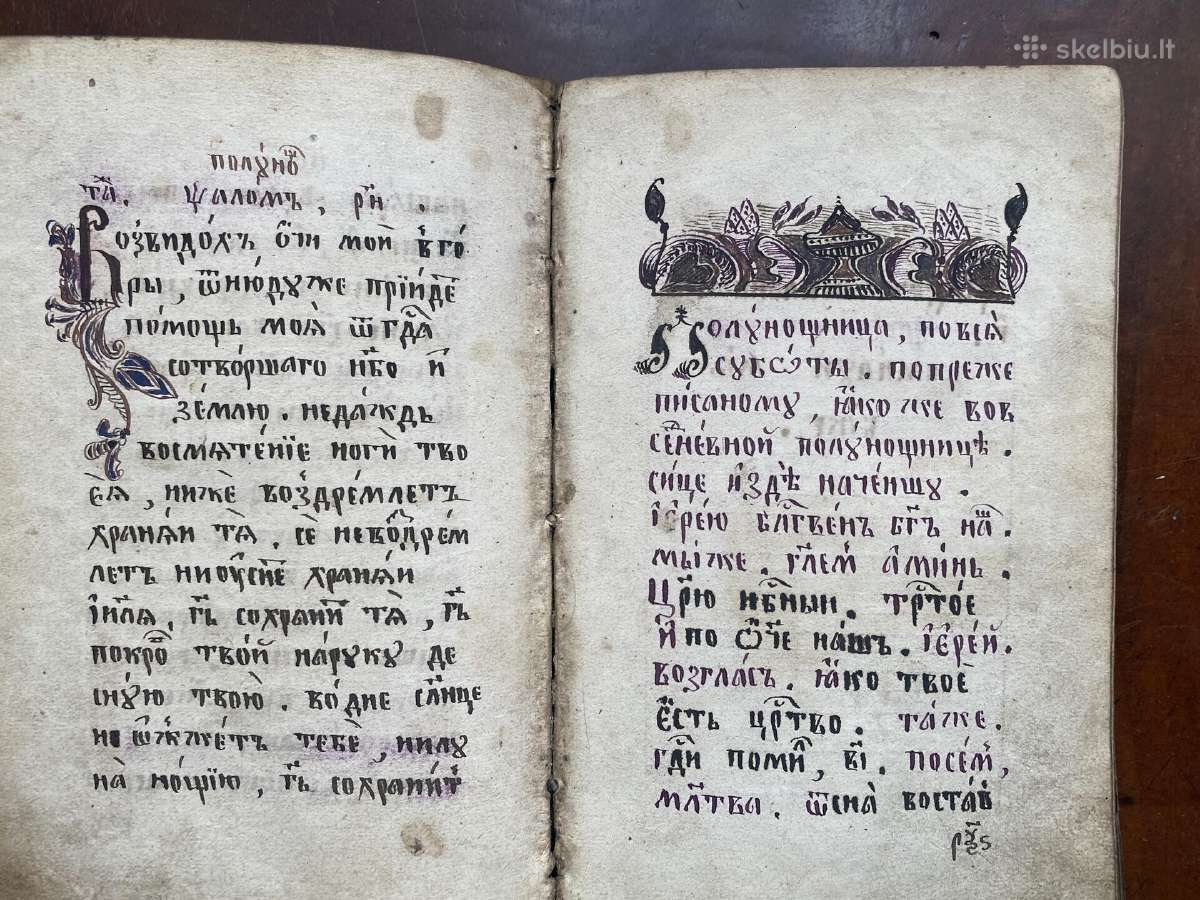 полꙋно́щ
та̀. ѱало́мъ, рк҃.
Возвидо́хъ ѻ҆́чи моѝ в̾го́
ры, ѿню́дꙋже прїи́де
по́мощь моѧ̀ ѿ гдⷭ҇а
сотво́ршаго нб҃о и҆
зе́млю. неда́ждь
восмѧте́нїе ногѝ тво
еѧ̀, нижѐ воздре́млетъ
хранѧ́и тѧ̀. сѐ невоздре́м
летъ ниоу҆́снетъ хранѧ́и
і҆и҃лѧ, гд҇ь сохрани́тъ тѧ̀, гд҇ь
покро́въ тво́й на́рꙋкꙋ де
снꙋ́ю твою̀. во́дне сл҃нце
не ѡ҆жже́тъ тебѐ, нилꙋ
на̀ но́щїю, гд҇ь сохрани́тъ
Полꙋ́нощница, повсѧ̀
сꙋббѡ́ты. попреже
пи́саномꙋ, ꙗ҆́коже вов
седне́вной полꙋ́нощницѣ.
си́це и҆здѣ̀ наче́ншꙋ.
І҆ере́ю бл҃гⷭ҇ве́нъ бг҃ъ на́ш.
мы́же. гл҃емъ а҆ми́нь.
Цр҃ю нбⷭ҇ныи. трⷭ҇то́е
И҆ по ѻ҆́ч҃е на́шъ. І҆ере́й.
во́згласъ. ꙗ҆́ко твоѐ
є҆́сть црⷭ҇тво. та́же.
гдⷭ҇и поми́л, в҃і. посе́м,
мл҃тва. ѿсна̀ воста́в
рч҃ѕ
skelbiu.lt